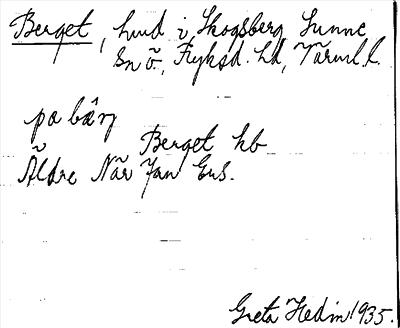 Berget, hmd i Skogsberg Sunne
sn ö., Fryksd. hd, Värml. l.
på bâŋ
Berget hb
Äldre När Jan Ers.
Greta Hedin 1935.